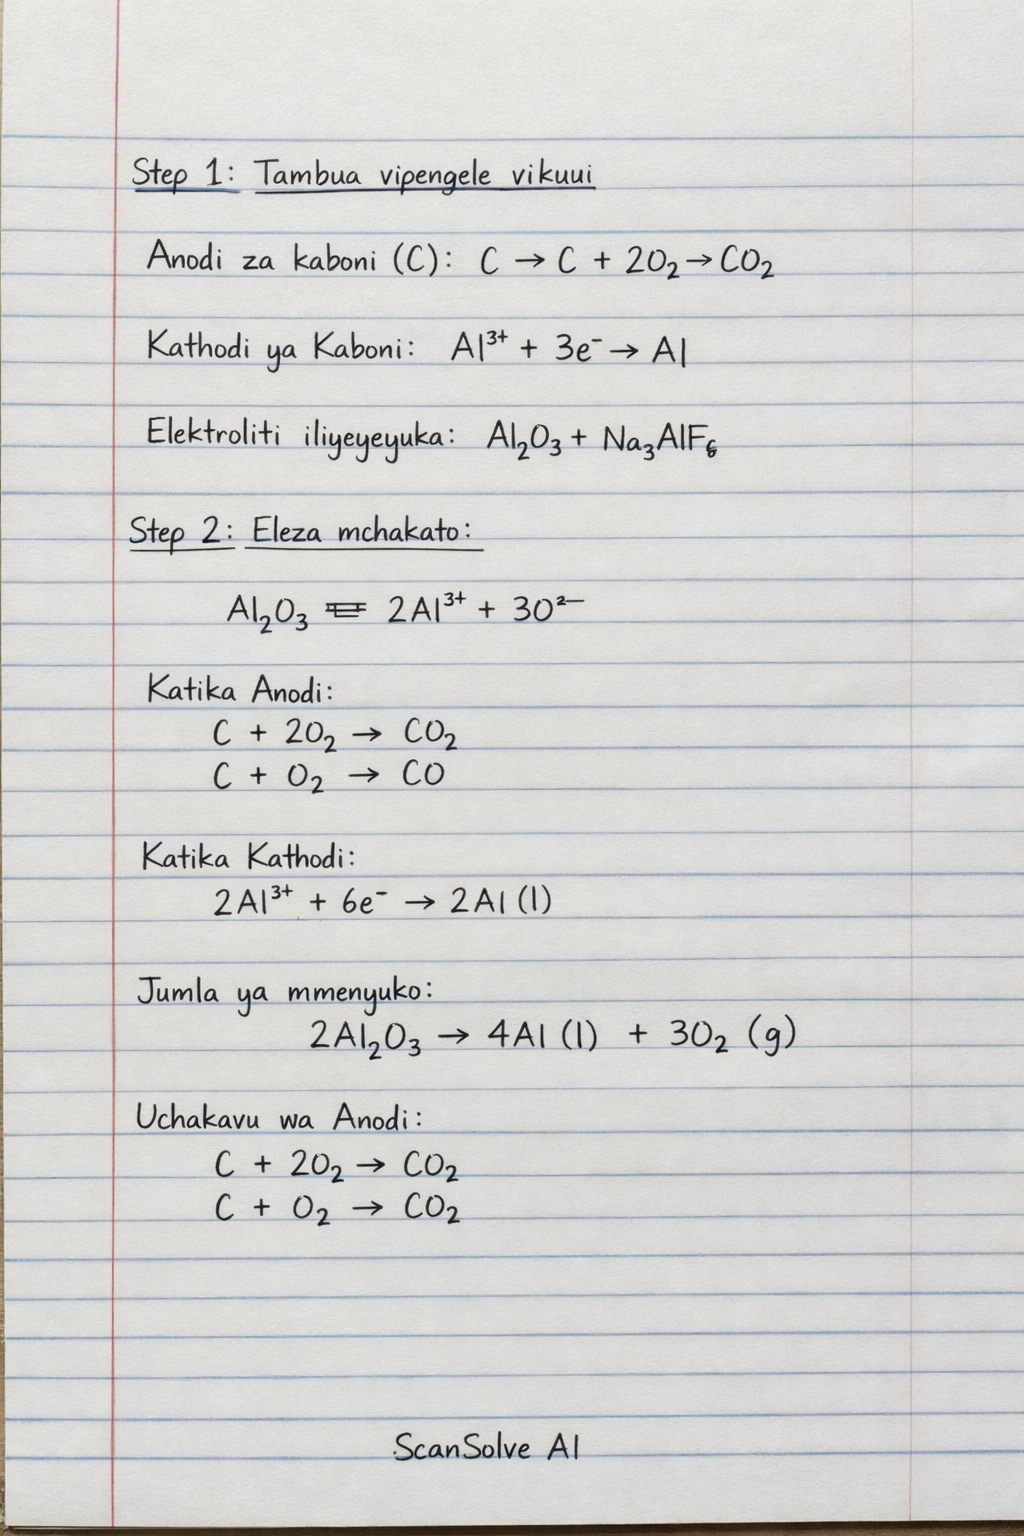 Step 1: Tambua vipengele vikuui
Anodi za kaboni (C): C → C + 2O₂ → CO₂
Kathodi ya Kaboni: Al³⁺ + 3e⁻ → Al
Elektroliti iliyeyeyuka: Al₂O₃ + Na₃AlF₆
Step 2: Eleza mchakato:
Al₂O₃ ⇌ 2Al³⁺ + 3O²⁻
Katika Anodi:
C + 2O₂ → CO₂
C + O₂ → CO
Katika Kathodi:
2Al³⁺ + 6e⁻ → 2Al (l)
Jumla ya mmenyuko:
2Al₂O₃ → 4Al (l) + 3O₂ (g)
Uchakavu wa Anodi:
C + 2O₂ → CO₂
C + O₂ → CO₂
ScanSolve AI